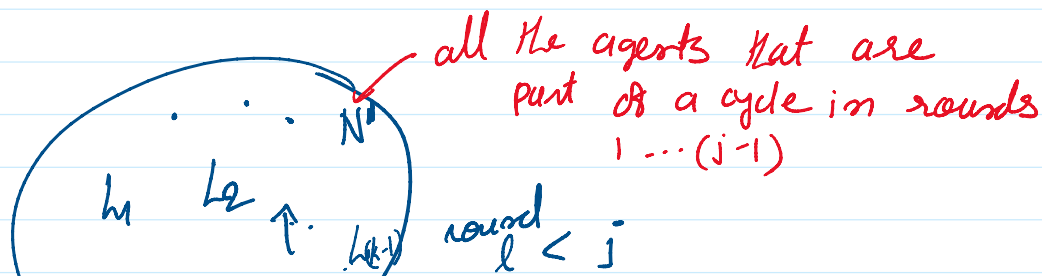 all the agents that are
part of a cycle in rounds
1 ... (j-1)
N"
L1 L2 L(k-1)
round
l < j